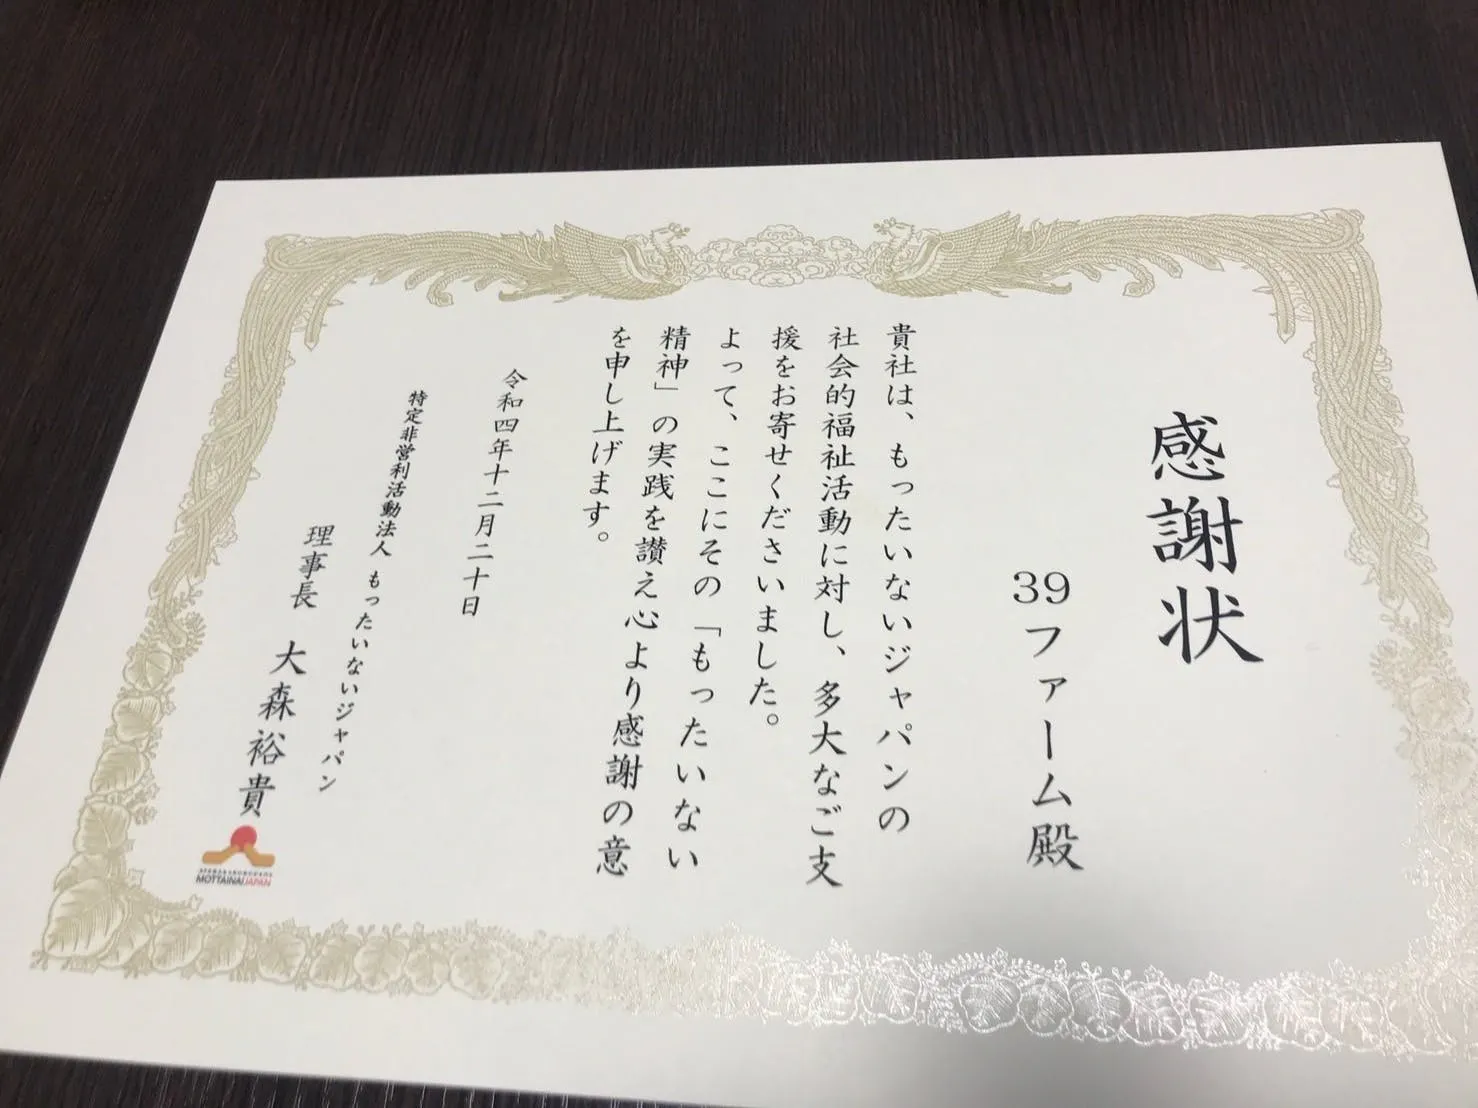 感謝状
39ファーム殿
貴社は、もったいないジャパンの
社会的福祉活動に対し、多大なご支
援をお寄せくださいました。
よって、ここにその「もったいない
精神」の実践を讃え心より感謝の意
を申し上げます。
令和四年十二月二十日
特定非営利活動法人 もったいないジャパン
理事長 大森裕貴
MOTTAINAI JAPAN